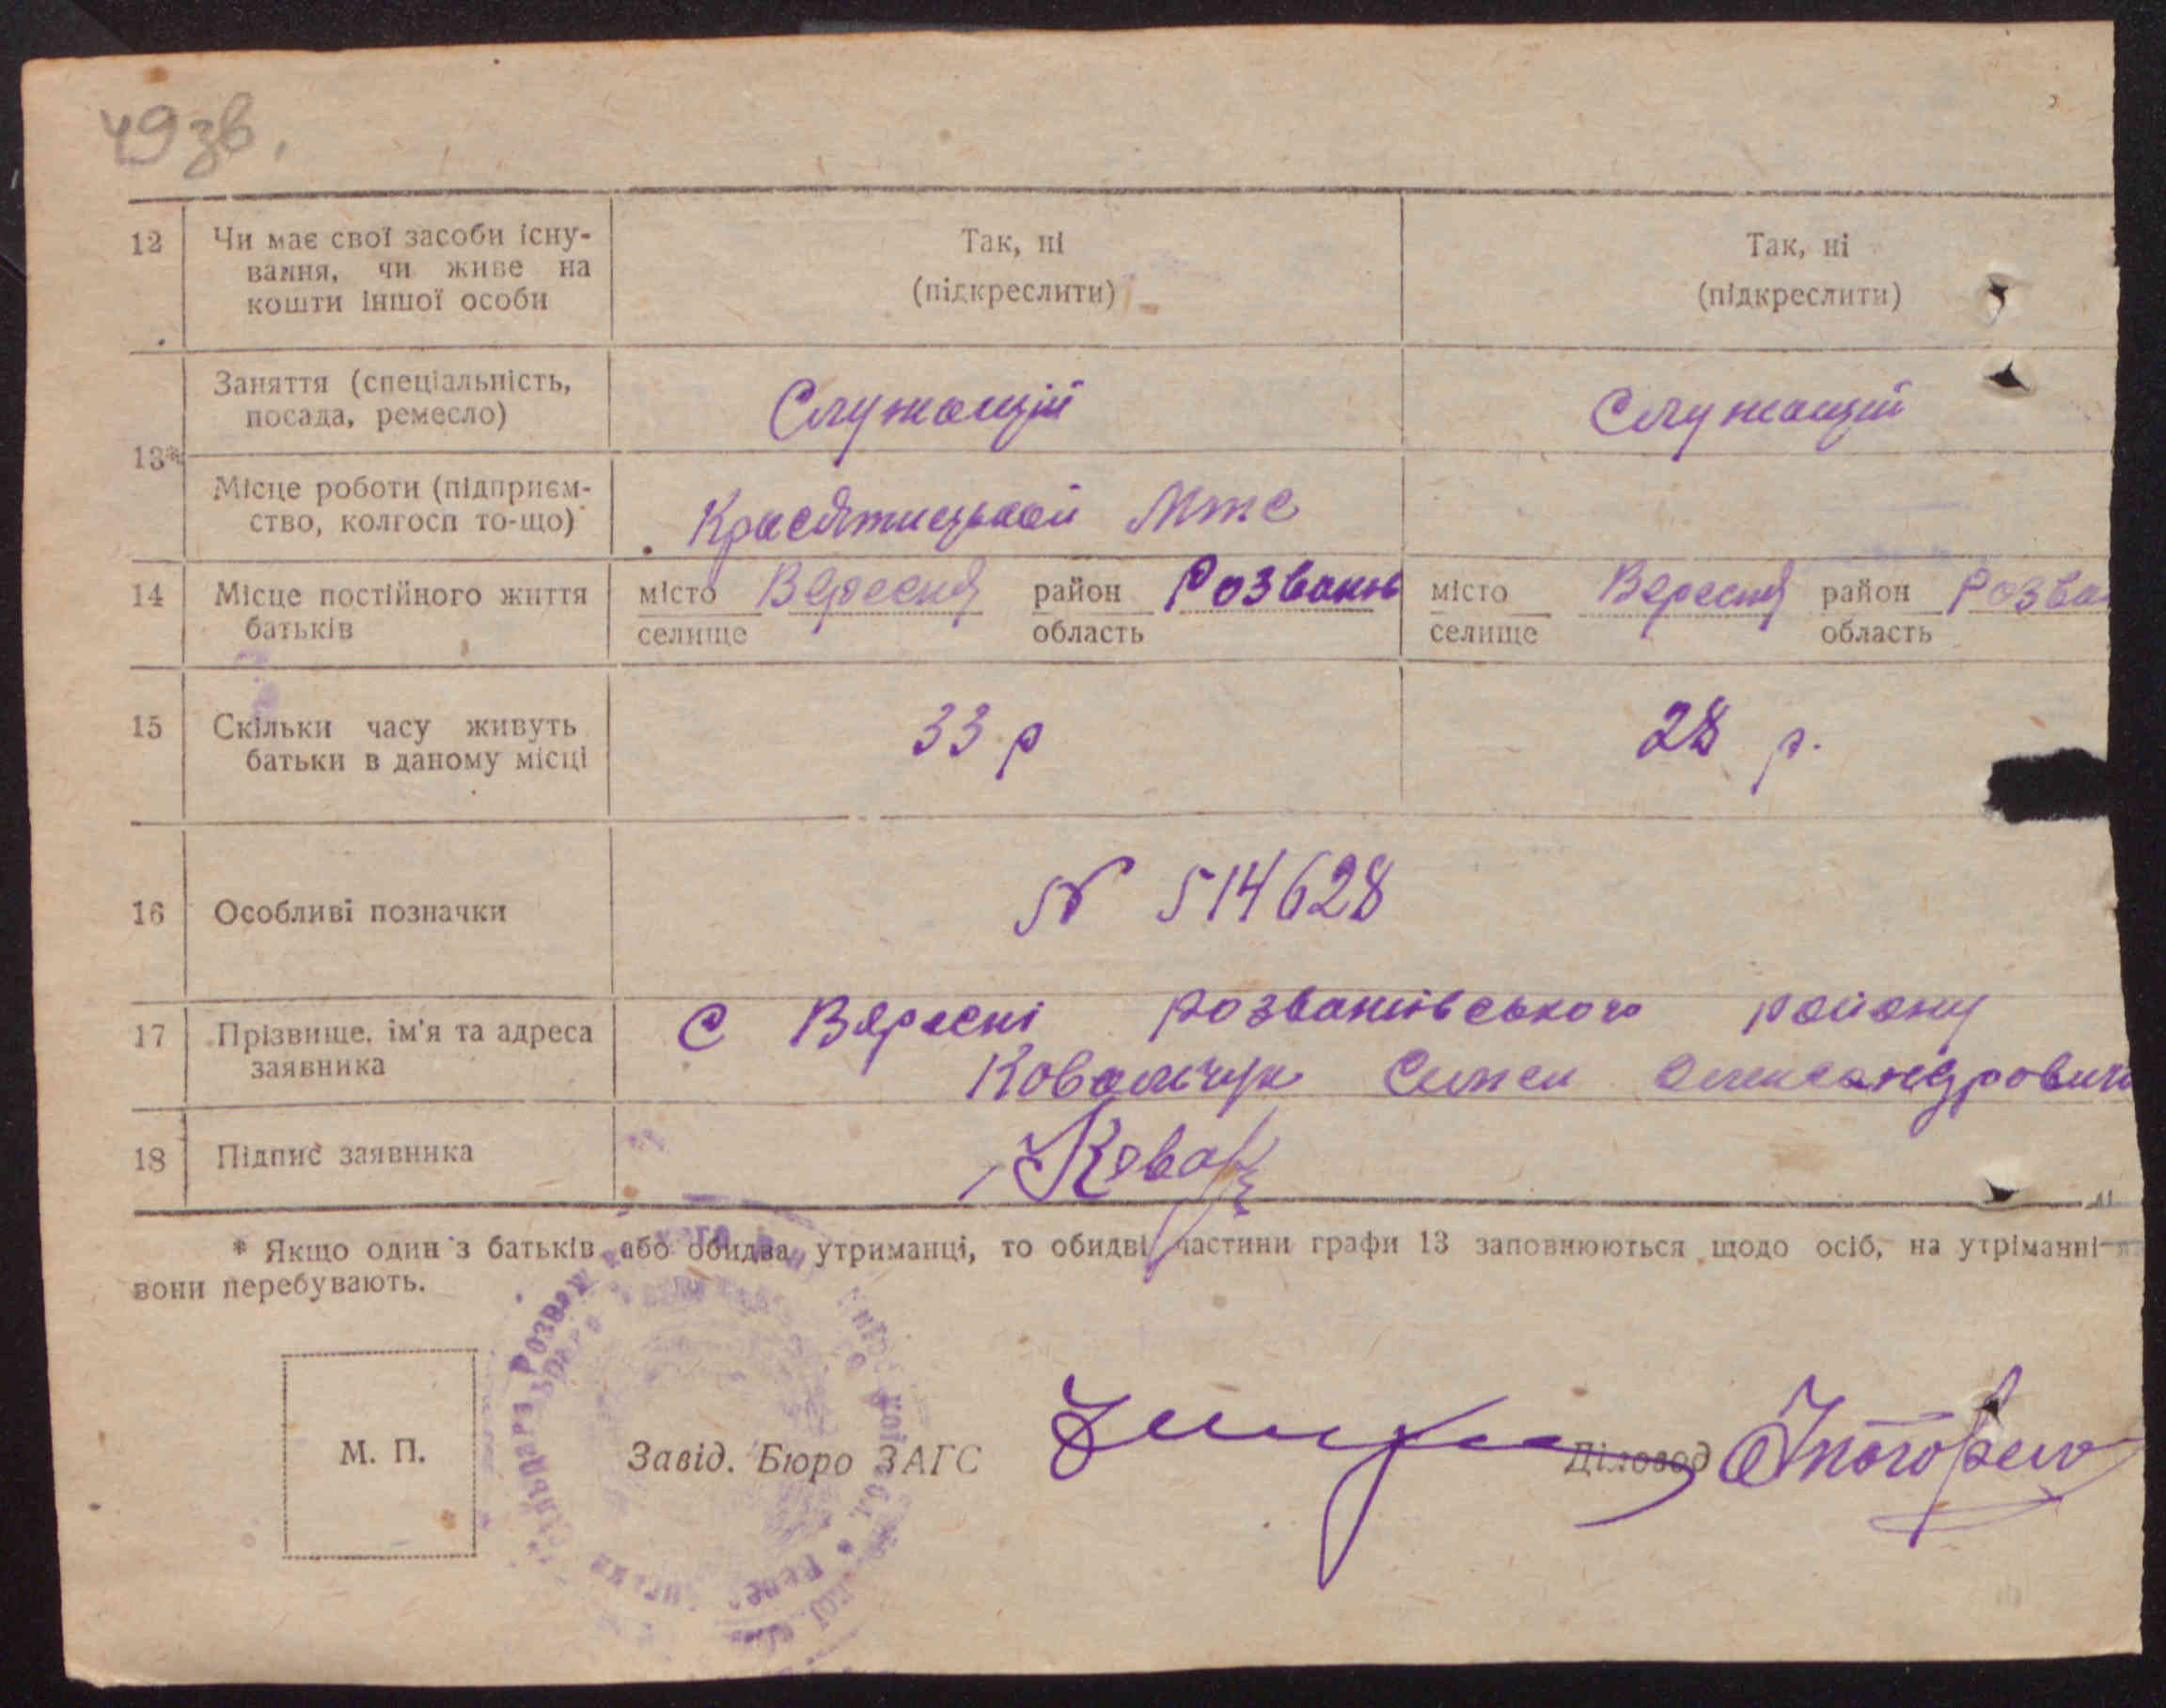 49 зв.
12 Чи має свої засоби існу- Так, ні Так, ні
вання, чи живе на (підкреслити) (підкреслити)
кошти іншої особи
13* Заняття (спеціальність, Служащій Служащій
посада, ремесло)
Місце роботи (підприєм-
ство, колгосп то-що) Мтс
14 Місце постійного життя місто Вересня район Розважів місто Вересня район Розва
батьків селище область селище область
15 Скільки часу живуть 33 р 28 р.
батьки в даному місці
16 Особливі позначки N 514628
17 Прізвище, ім'я та адреса С Вересні розважівського району
заявника Ковальчук Семен Олександрович
18 Підпис заявника Ковал
* Якщо один з батьків або обидва утриманці, то обидві частини графи 13 заповнюються щодо осіб, на утріманні
вони перебувають.
М. П. Завід. Бюро ЗАГС Діловод